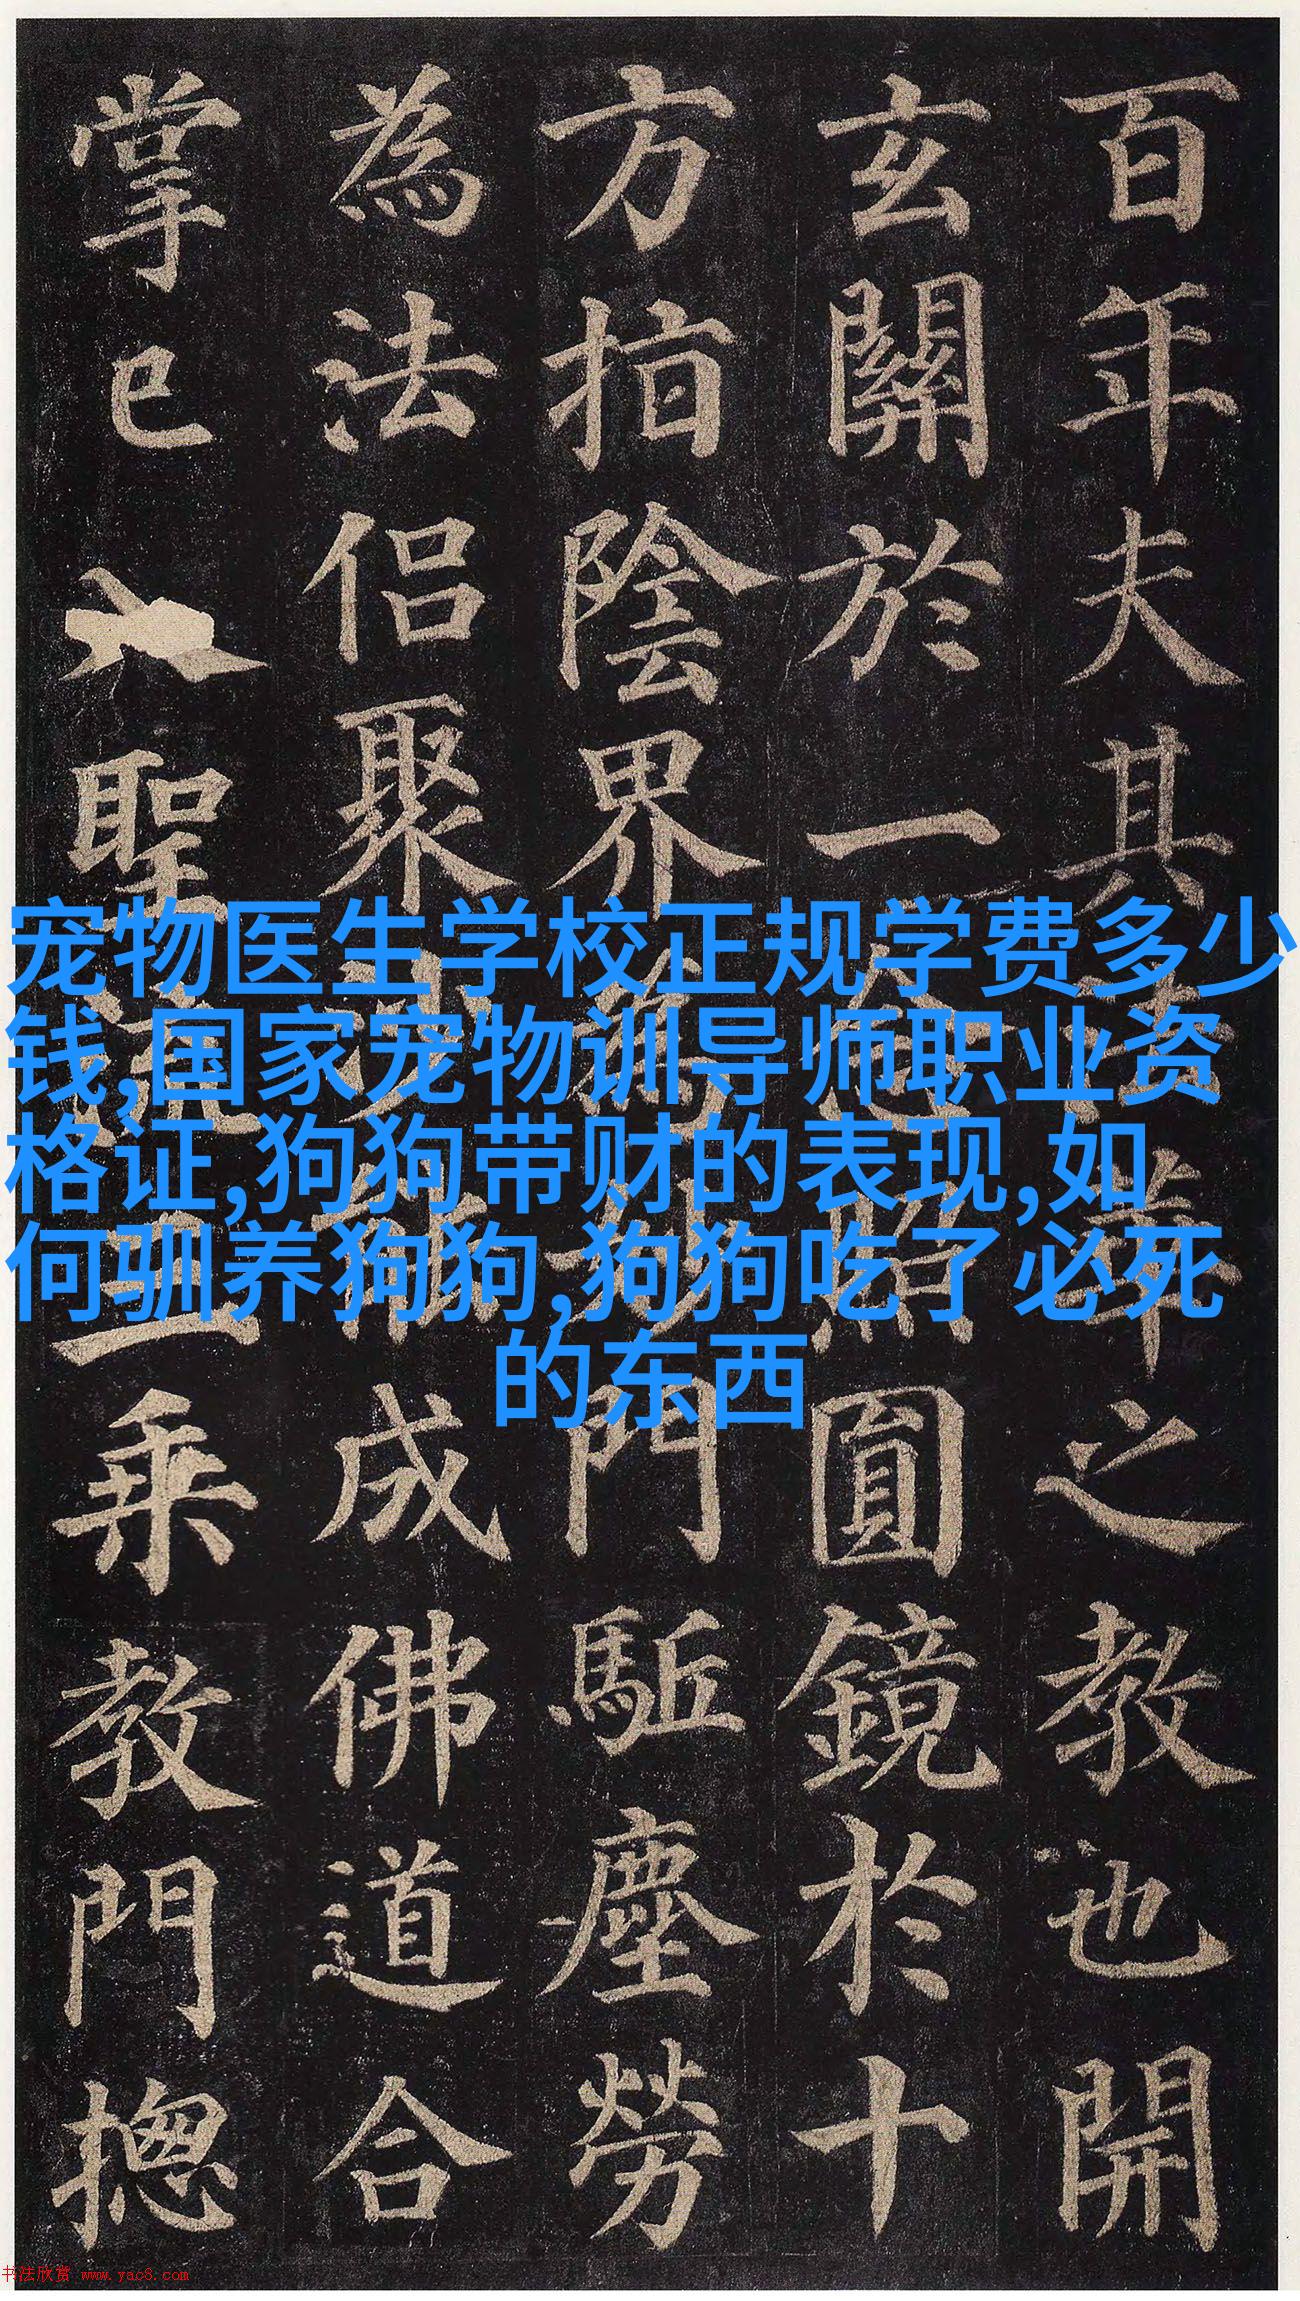 百年夫其法華之教也開
玄關於一念照圓鏡於十
方指陰界為妙門駈塵勞
為法侶聚沙能成佛道合
掌已入聖乘教門摠
宠物医生学校正规学费多少
钱,国家宠物训导师职业资
格证,狗狗带财的表现,如
何驯养狗狗,狗狗吃了必死
的东西
书法欣赏 www.yac8.com